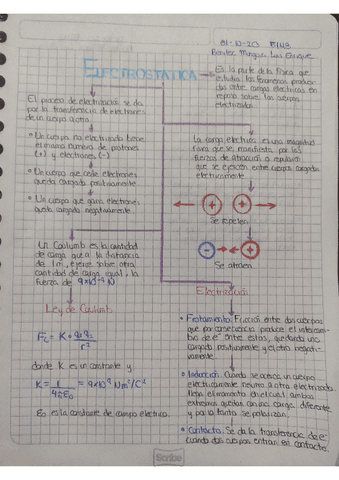 01-10-20
Benitez Luis Enrique
ELECTROSTÁTICA
Es la parte de la física que
estudia los fenómenos producidos
por cargas eléctricas en
reposo sobre los cuerpos
electrizados.
El proceso de electrización se da
por la transferencia de electrones
de un cuerpo a otro.
• Un cuerpo no electrizado tiene
el mismo número de protones
(+) y electrones (-)
• Un cuerpo que cede electrones
queda cargado positivamente.
• Un cuerpo que gana electrones
queda cargado negativamente.
La carga eléctrica es una magnitud
física que se manifiesta por las
fuerzas de atracción o repulsión
que se ejercen entre cuerpos cargados
eléctricamente.
+ +
Se repelen
- +
Se atraen
Un Coulumb es la cantidad
de carga que a la distancia
de 1m, ejerce sobre otra
cantidad de carga igual, la
fuerza de 9x10⁹ N
Ley de Coulumb
Fc = K q₁q₂/r²
donde K es un constante y
K = 1/4πε₀ = 9x10⁹ Nm²/C²
E₀ es la constante de campo eléctrico.
Electrización
• Frotamiento: Fricción entre dos cuerpos
que por consecuencia produce el intercam-
bio de e⁻ entre estos, quedando uno
cargado positivamente y el otro negati-
vamente.
• Inducción: Cuando se acerca un cuerpo
eléctricamente neutro a otro electrizado,
llega el momento en el cual ambos
extremos quedan con una carga diferente
y por lo tanto se polarizan.
• Contacto: Se da la transferencia de e⁻
cuando dos cuerpos entran en contacto.
Scribe